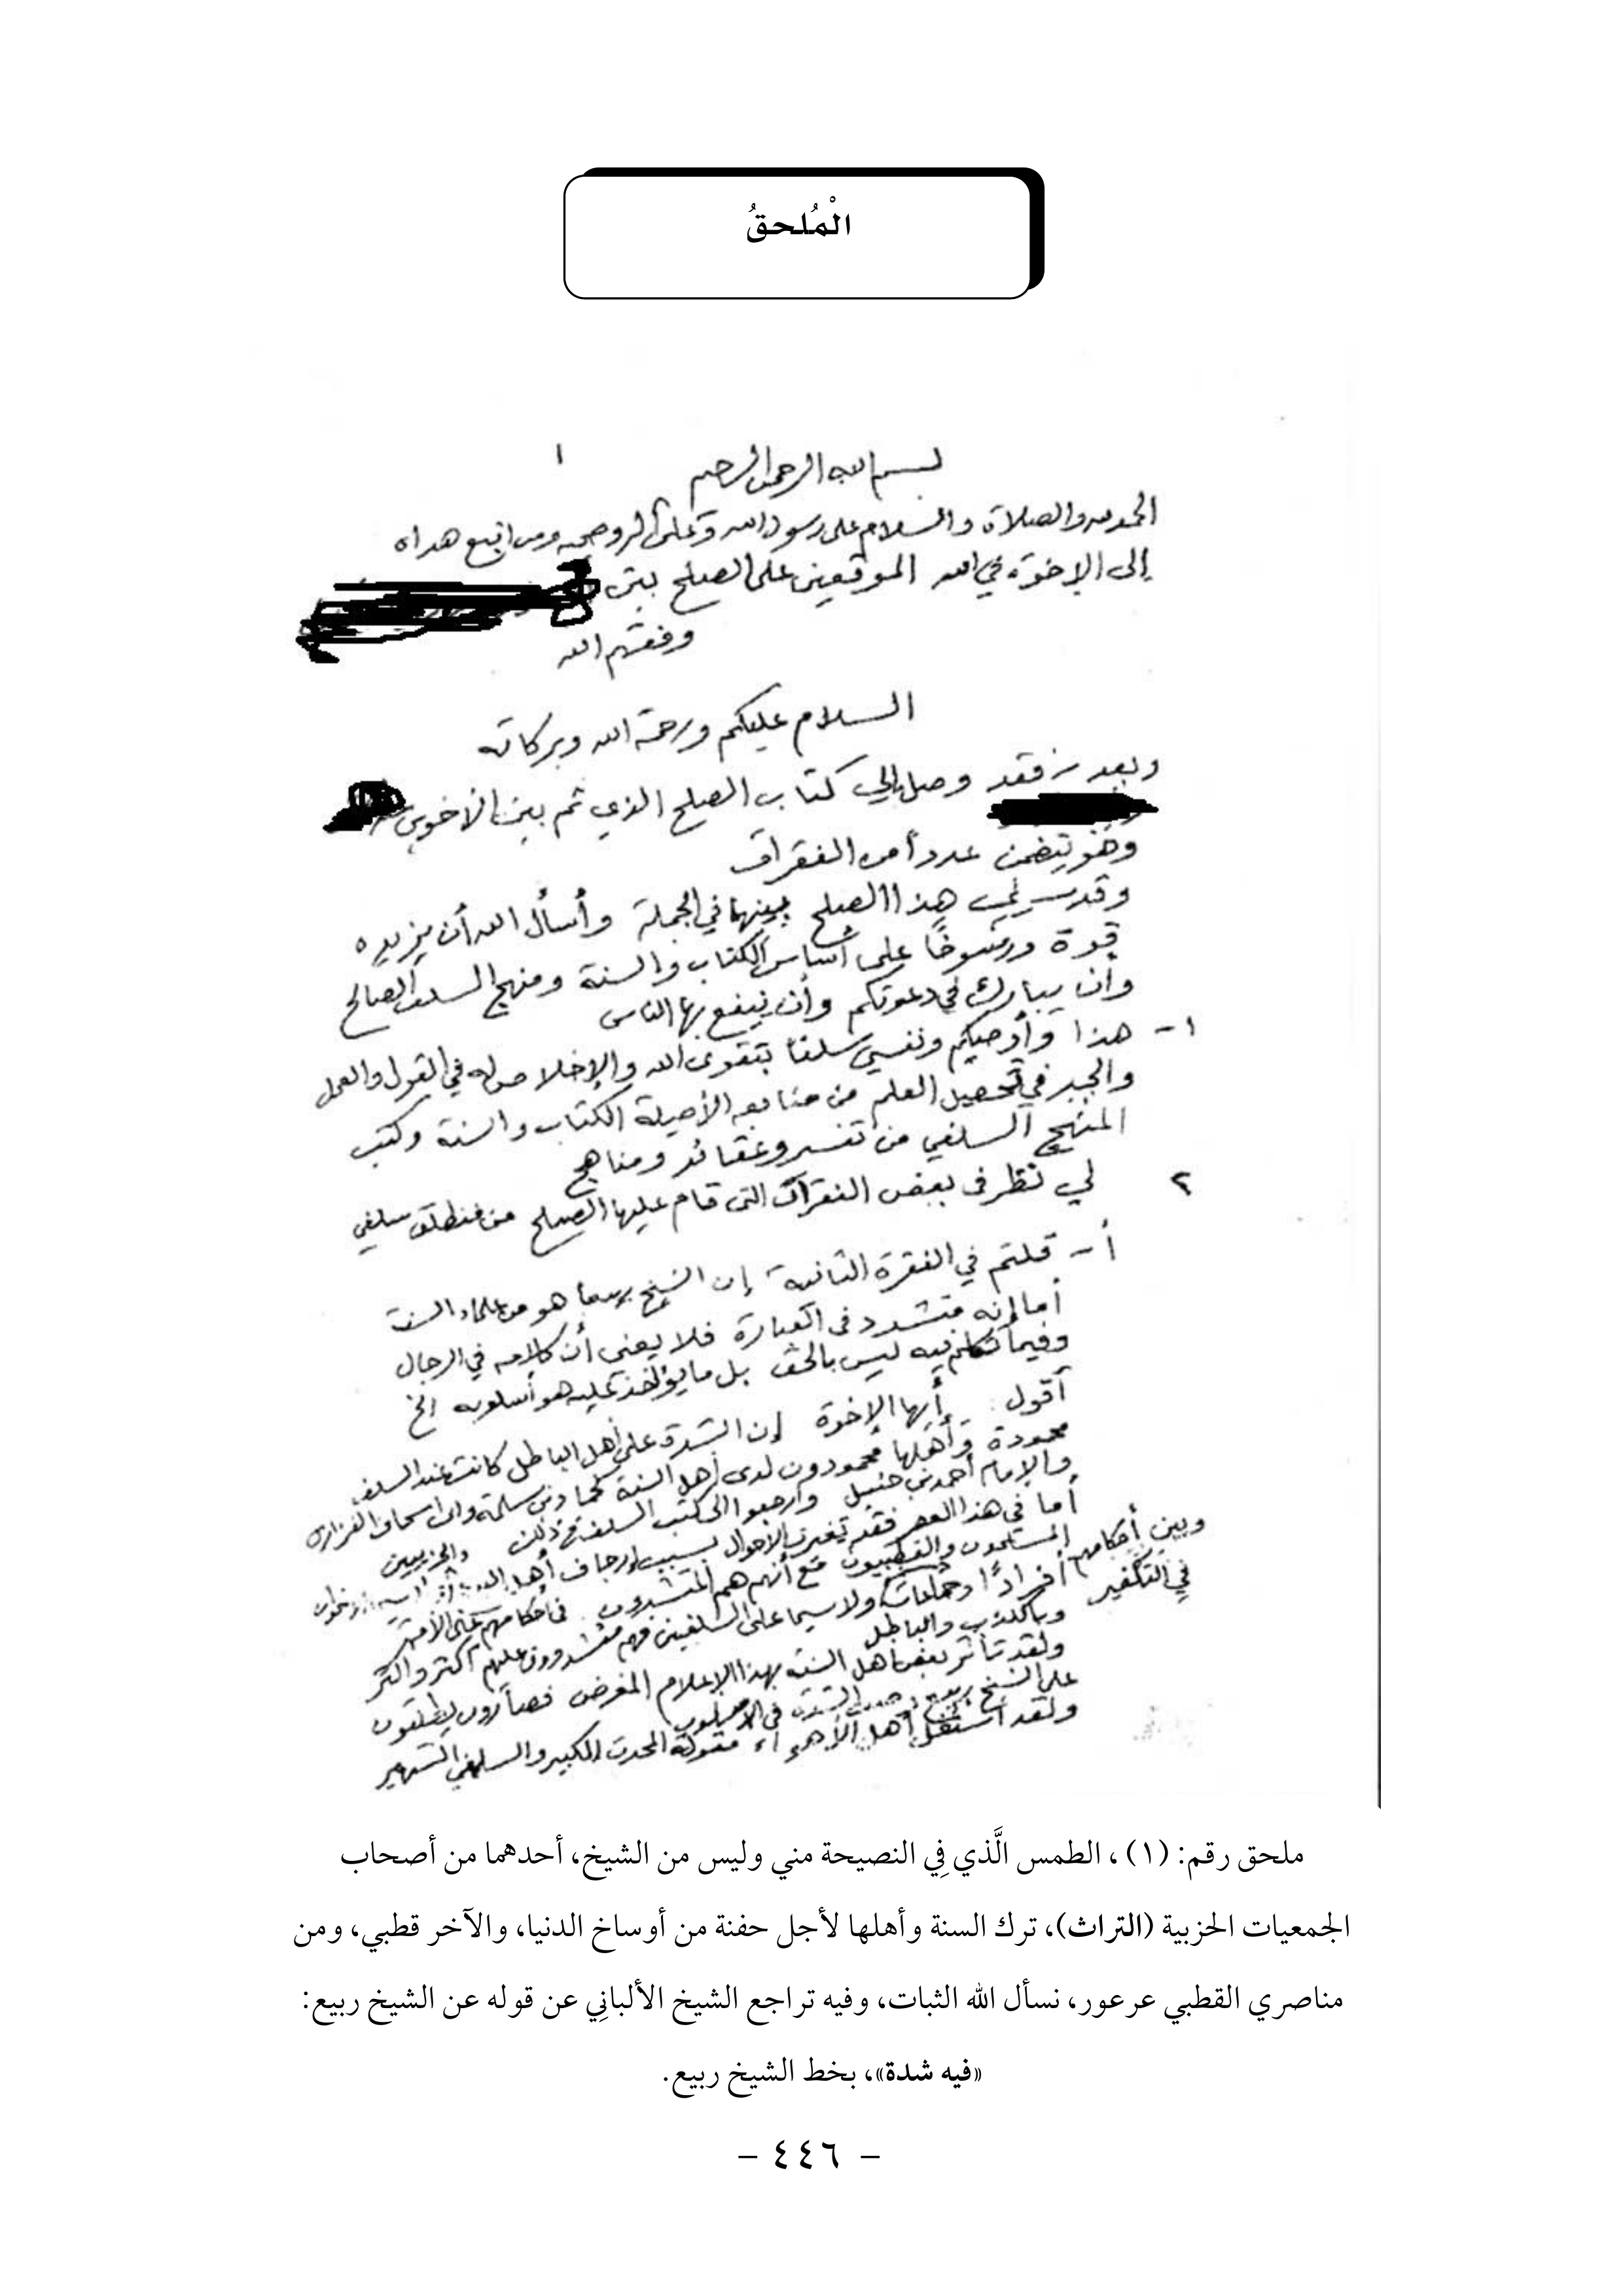 الْمُلحقُ
١
بسم الله الرحمن الرحيم
الحمد لله والصلاة والسلام على رسول الله وعلى آله وصحبه ومن اتبع هداه
إلى الإخوة في الله الموقعين على الصلح بين
وفقهم الله
السلام عليكم ورحمة الله وبركاته
وبعد فقد وصل إلي كتاب الصلح الذي تم بين الأخوين
وهو يتضمن عدداً من الفقرات
وقد سرني هذا الصلح بينهما في الجملة وأسأل الله أن يزيده
قوة ورسوخًا على أساس الكتاب والسنة ومنهج السلف الصالح
وأن يبارك في دعوتكم وأن ينفع بها الناس
١- هذا وأوصيكم ونفسي سلفاً بتقوى الله والإخلاص له في القول والعمل
والجد في تحصيل العلم من منابعه الأصيلة الكتاب والسنة وكتب
المنهج السلفي من تفسير وعقائد ومناهج
٢ لي نظر في بعض الفقرات التي قام عليها الصلح من منطلق سلفي
أ- قلتم في الفقرة الثانية إن الشيخ ربيعاً هو من علماء السنة
أما إنه متشدد في العبارة فلا يعني أن كلامه في الرجال
وفيما تكلم فيه ليس بالحق بل ما يؤاخذ عليه هو أسلوبه الخ
أقول: أيها الإخوة إن الشدة على أهل الباطل كانت عند السلف
محمودة وأهلها محمودون لدى أهل السنة كحماد بن سلمة وأبي إسحاق الفزاري
والإمام أحمد بن حنبل وارجعوا إلى كتب السلف في ذلك
أما في هذا العصر فقد تغيرت الأحوال بسبب إرجاف أهل والحزبيين
المسلمون والقطبيون مع أنهم هم المتشددون في أحكامهم على الأمة
أفرادًا وجماعات ولا سيما على السلفيين فهم متشددون عليهم أكثر وأكثر
وبين أحكامهم في التكفير
وبالكذب والباطل
ولقد تأثر بعض أهل السنة بهذا الإعلام المغرض فصاروا يطلقون
على الشيخ ربيع الشدة في الأسلوب
ولقد استغل أهل الأهواء مقولة المحدث الكبير والسلفي الشهير
ملحق رقم: (١) ، الطمس الَّذي فِي النصيحة مني وليس من الشيخ، أحدهما من أصحاب
الجمعيات الحزبية (التراث)، ترك السنة وأهلها لأجل حفنة من أوساخ الدنيا، والآخر قطبي، ومن
مناصري القطبي عرعور، نسأل الله الثبات، وفيه تراجع الشيخ الألبانِي عن قوله عن الشيخ ربيع:
«فيه شدة»، بخط الشيخ ربيع.
- ٤٤٦ -